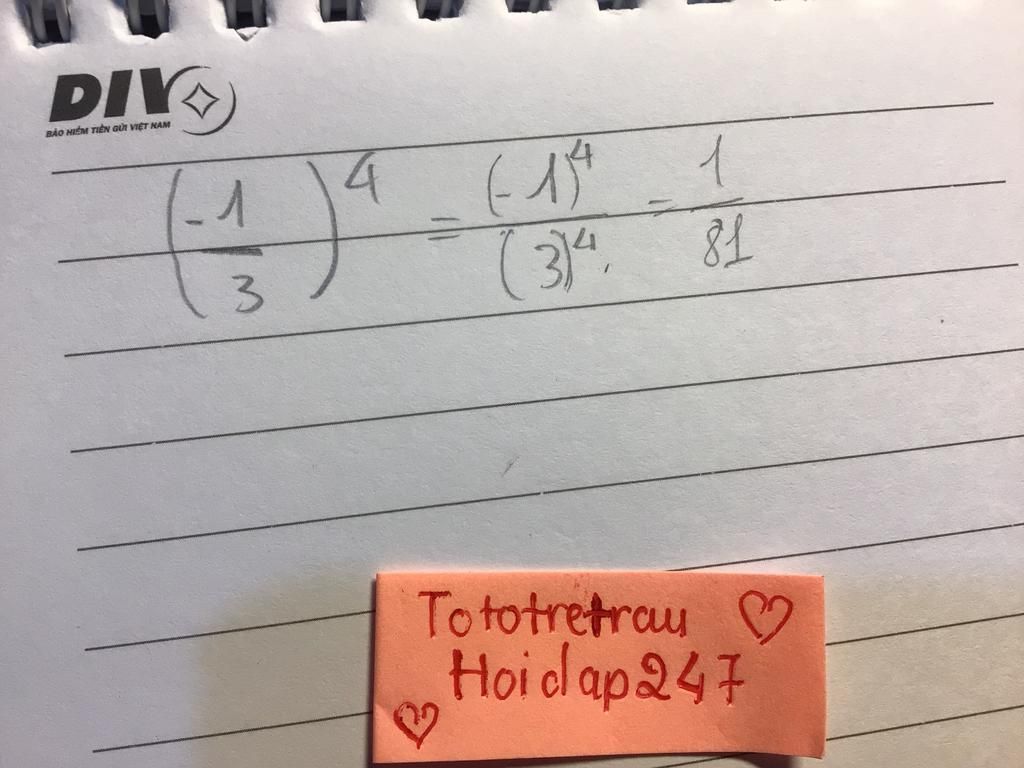 DIV
BẢO HIỂM TIỀN GỬI VIỆT NAM
(-1/3)^4 = (-1)^4/(3)^4. = 1/81
Tototretrau
Hoidap247